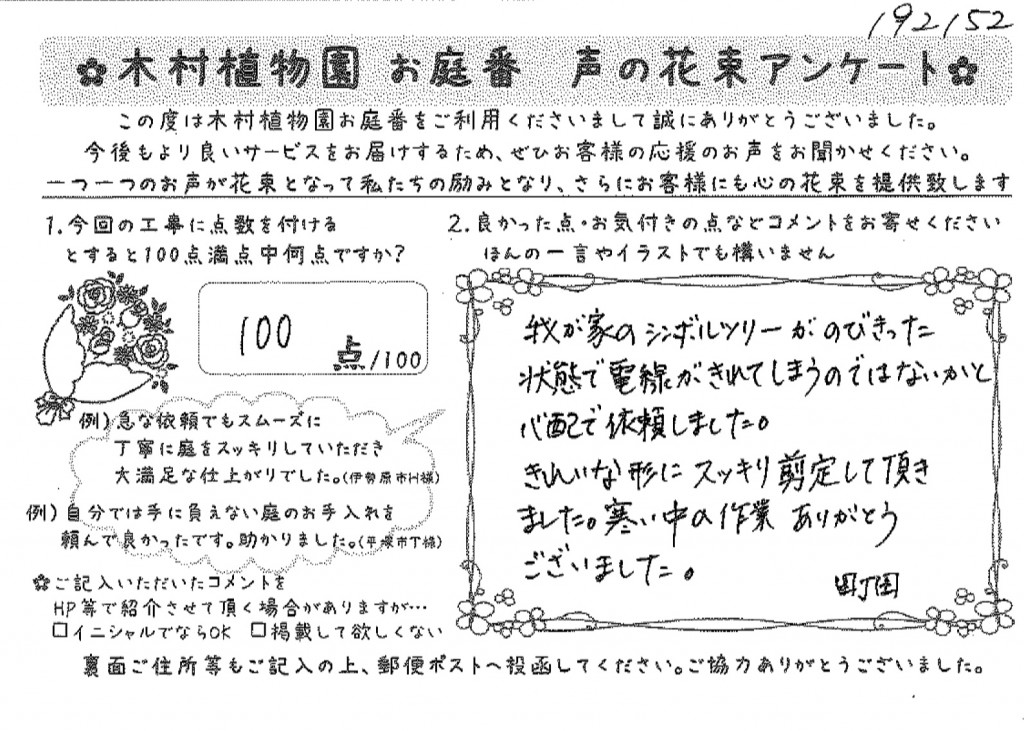 192152
✿木村植物園 お庭番 声の花束アンケート✿
この度は木村植物園お庭番をご利用くださいまして誠にありがとうございました。
今後もより良いサービスをお届けするため、ぜひお客様の応援のお声をお聞かせください。
一つ一つのお声が花束となって私たちの励みとなり、さらにお客様にも心の花束を提供致します
1.今回の工事に点数を付ける
とすると100点満点中何点ですか？
100 点/100
例）急な依頼でもスムーズに
丁寧に庭をスッキリしていただき
大満足な仕上がりでした。(伊勢原市H様)
例）自分では手に負えない庭のお手入れを
頼んで良かったです。助かりました。(平塚市T様)
✿ご記入いただいたコメントを
HP等で紹介させて頂く場合がありますが…
□イニシャルでならOK □掲載して欲しくない
2.良かった点・お気付きの点などコメントをお寄せください
ほんの一言やイラストでも構いません
我が家のシンボルツリーがのびきった
状態で電線がきれてしまうのではないかと
心配で依頼しました。
きれいな形にスッキリ剪定して頂き
ました。寒い中の作業 ありがとう
ございました。
町田
裏面ご住所等もご記入の上、郵便ポストへ投函してください。ご協力ありがとうございました。